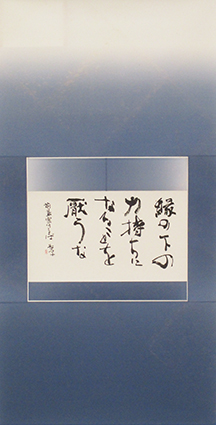 縁の下の
力持ちに
なることを
厭うな